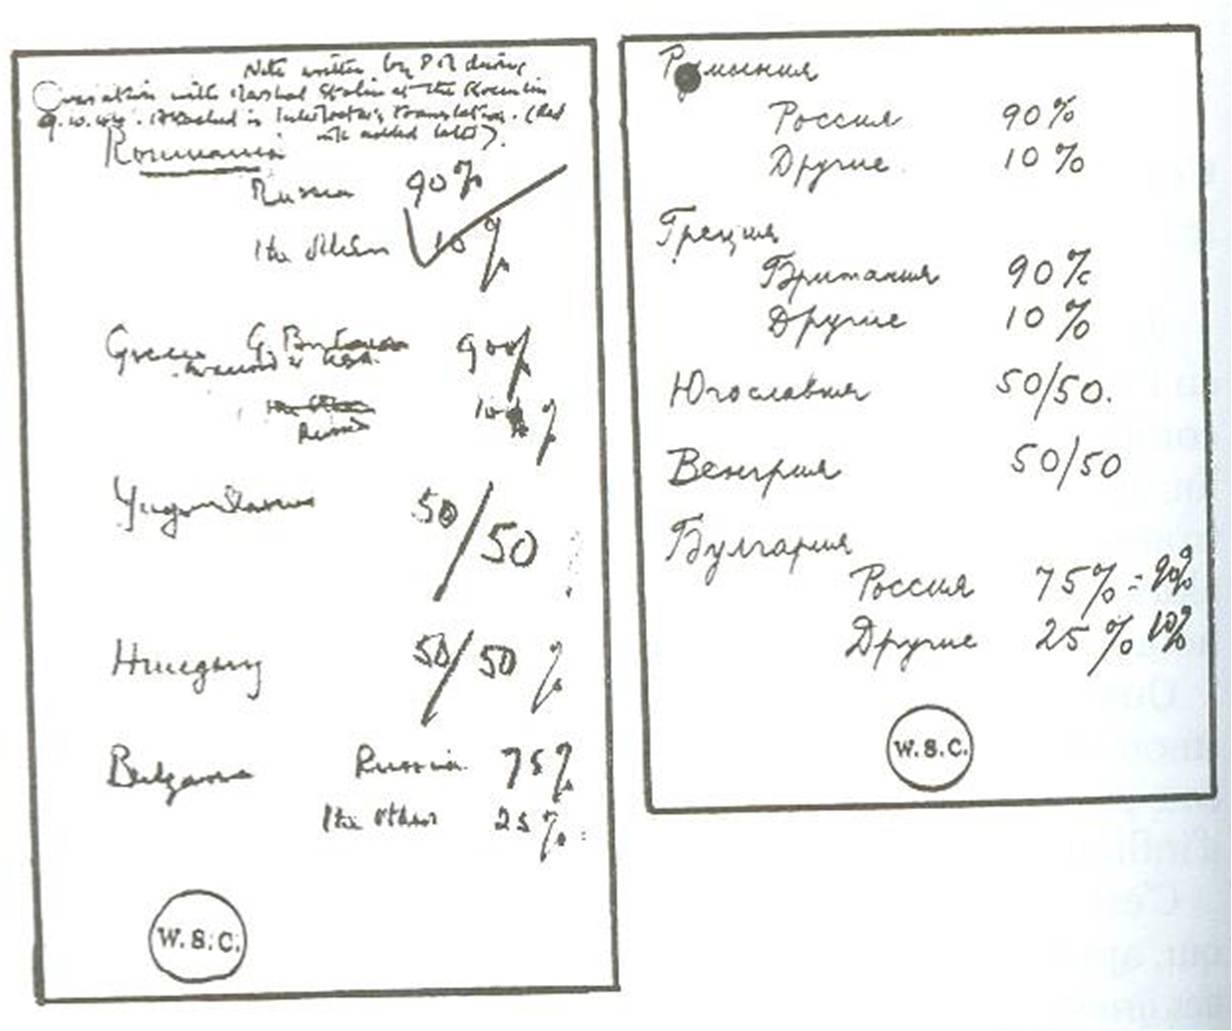 Note written by PM during
Conversation with Marshal Stalin at the Kremlin
Attached is Interpreter's translation. (Red
ink added later).
Roumania
Russia 90%
The others 10%
Greece G. Britain 90%
in accord USA
The others 10%
Russia
Yugoslavia 50/50
Hungary 50/50 %
Bulgaria Russia 75%
The others 25%
W.S.C.
Румыния
Россия 90%
Другие 10%
Греция
Британия 90%
Другие 10%
Югославия 50/50.
Венгрия 50/50
Булгария
Россия 75% - 90%
Другие 25% 10%
W.S.C.